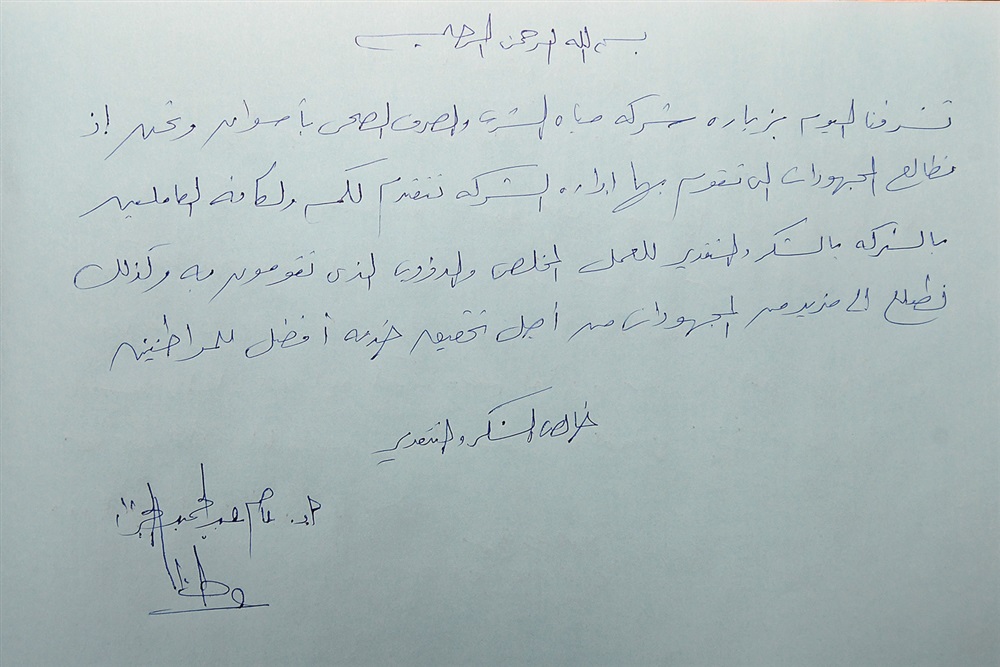 بسم الله الرحمن الرحيم
تشرفنا اليوم بزياره شركه مياه الشرب والصرف الصحى بأسوان ونحن إذ
نطالع المجهودات التى تقوم بها اداره الشركه نتقدم لكم ولكافه العاملين
بالشركه بالشكر والتقدير للعمل المخلص والدؤوب الذى تقومون به وكذلك
نتطلع الى مزيد من المجهودات من أجل تحقيق خدمه أفضل للمواطنين
خالص الشكر والتقدير
أ.د. عاصم عبد الحميد